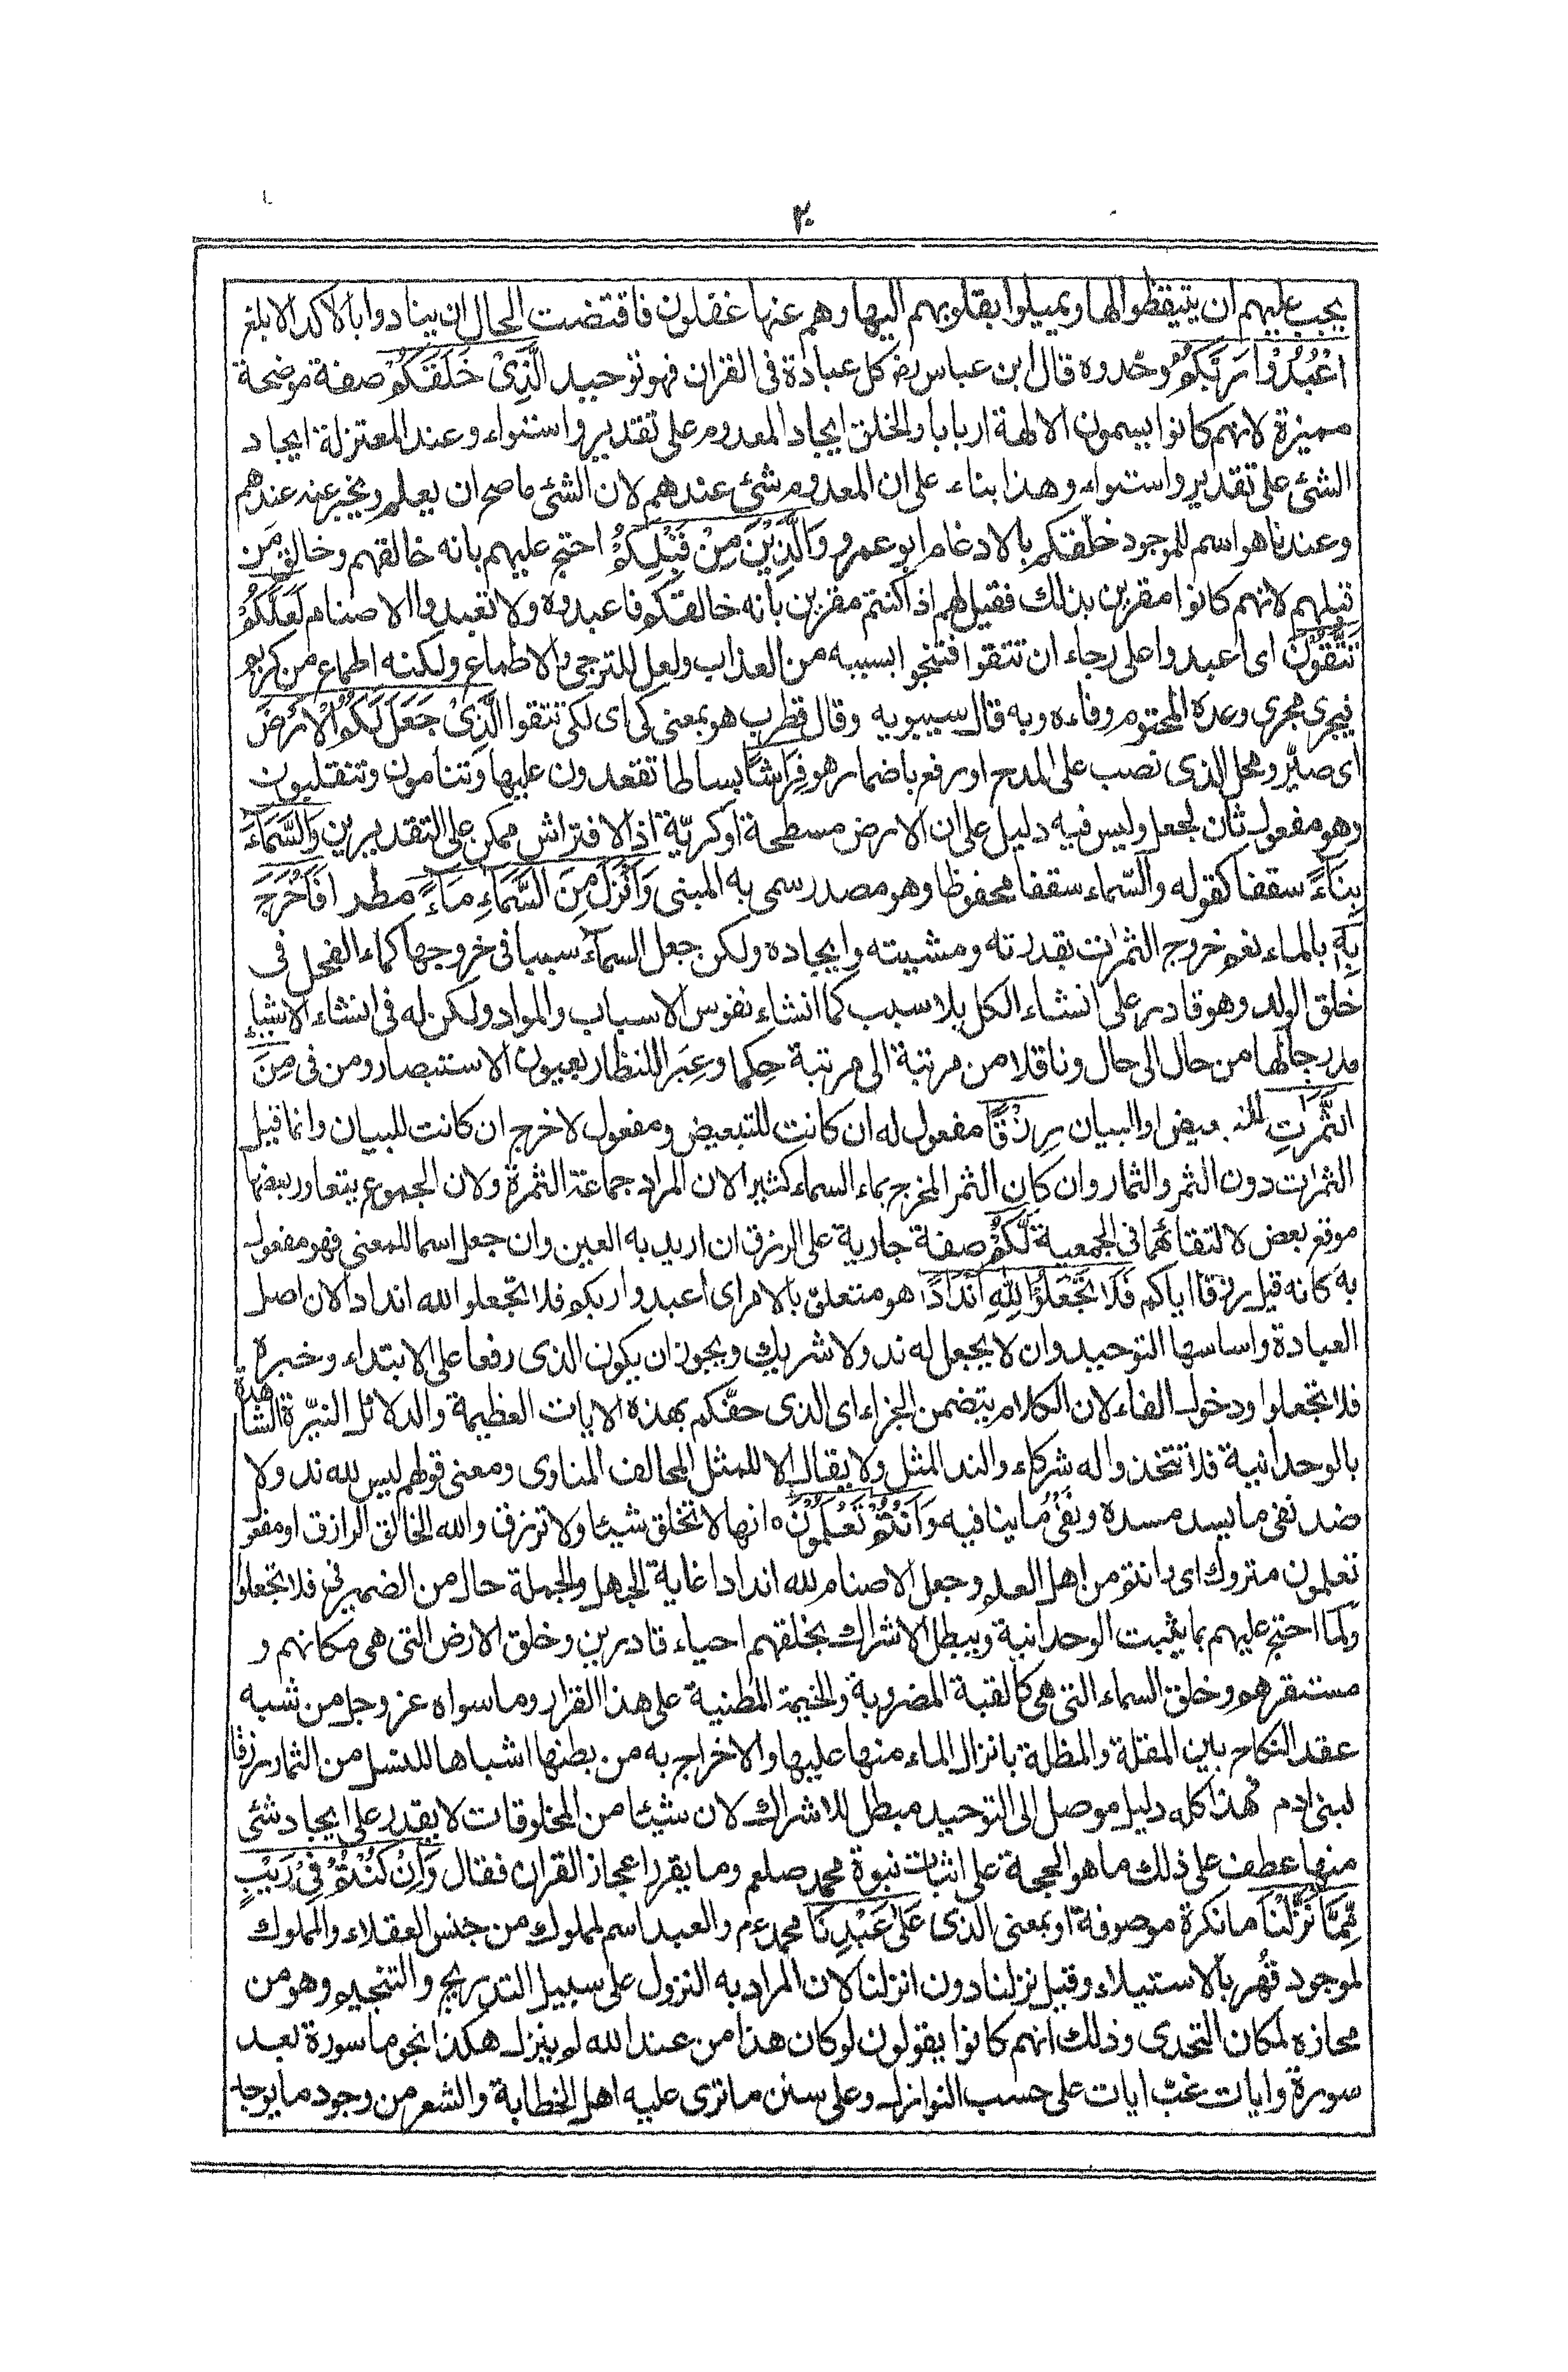 ٢٠
يجب عليهم ان يتيقظوا لها ويميلوا بقلوبهم اليها وهم عنها غفلون فاقتضت الحال ان ينادوا بالاكد الابلغ
اعْبُدُوْا رَبَّكُمُ وحّدوه قال ابن عباس رضـ كل عبادة فى القران فهو توحيد الَّذِىْ خَلَقَكُمْ صفة موضحة
مميزة لانهم كانوا يسمون الالهة اربابا والخلق ايجاد المعدوم على تقدير واستواء وعند المعتزلة ايجاد
الشئ على تقدير واستواء وهذا بناء على ان المعدوم شئ عندهم لان الشئ ما صح ان يعلم ويخبر عنه عندهم
وعندنا هو اسم للموجود خلّقكم بالادغام ابو عمرو وَالَّذِيْنَ مِنْ قَبْلِكُمْ احتج عليهم بانه خالقهم وخالق من
قبلهم لانهم كانوا مقرين بذلك فقيل لهم اذا كنتم مقرين بانه خالقكم فاعبدوه ولا تعبدوا الاصنام لَعَلَّكُمْ
تَتَّقُوْنَ اى اعبدوا على رجاء ان تتقوا فتنجوا بسببه من العذاب ولعل للترجى والاطماع ولكنه اطماع من كريم
فيجرى مجرى وعده المحتوم وفاءه وبه قال سيبويه وقال قطرب هو بمعنى كى اى لكى تتقوا الَّذِىْ جَعَلَ لَكُمُ الْاَرْضَ
اى صيّر ومحل الذى نصب على المدح او رفع باضمار هو فِرَاشًا بساطا تقعدون عليها وتنامون وتتقلبون
وهو مفعول ثان لجعل وليس فيه دليل على ان الارض مسطحة او كريّة اذ الافتراش ممكن على التقديرين وَالسَّمَآءَ
بِنَآءً سقفا كقوله والسّماء سقفا محفوظا وهو مصدر سمى به المبنى وَاَنْزَلَ مِنَ السَّمَآءِ مَآءً مطرا فَاَخْرَجَ
بِهٖ بالماء نعم خروج الثمرات بقدرته ومشيته وايجاده ولكن جعل السماء سببا فى خروجها كماء الفحل فى
خلق الولد وهو قادر على انشاء الكل بلا سبب كما انشاء نفوس الاسباب والمواد ولكن له فى انشاء الاشياء
مدرجا لها من حال الى حال وناقلا من مرتبة الى مرتبة حِكما وعِبَرا للنظار بعيون الاستبصار ومن فى مِنَ
الثَّمَرٰتِ للتبعيض او البيان رِزْقًا مفعول له ان كانت للتبعيض ومفعول لاخرج ان كانت للبيان وانما قيل
الثمرات دون الثمر والثمار وان كان الثمر المخرج بماء السماء كثيرا لان المراد جماعة الثمرة ولان الجموع يتعاور بعضها
موقع بعض لالتقائهما فى الجمعية لَّكُمْ صفة جارية على الرزق ان اريد به العين وان جعل اسما للمعنى فهو مفعول
به كانه قيل رزقا اياكم فَلَا تَجْعَلُوْا لِلّٰهِ اَنْدَادًا هو متعلق بالامر اى اعبدوا ربكم فلا تجعلوا لله اندادا لان اصل
العبادة واساسها التوحيد وان لا يجعل له ند ولا شريك ويجوز ان يكون الذى رفعا على الابتداء وخبره
فلا تجعلوا ودخول الفاء لان الكلام يتضمن الجزاء اى الذى حفّكم بهذه الايات العظيمة والدلائل النيّرة الشاهدة
بالوحدانية فلا تتخذوا له شركاء والند المثل ولا يقال الا للمثل المخالف المناوى ومعنى قولهم ليس لله ند ولا
ضد نفى ما يسد مسده ونفى ما ينافيه وَاَنْتُمْ تَعْلَمُوْنَ ٥ انها لا تخلق شيئا ولا ترزق والله الخالق الرازق او مفعول
تعلمون متروك اى وانتم من اهل العلم وجعل الاصنام لله اندادا غاية الجهل والجملة حال من الضمير فى فلا تجعلوا
ولما احتج عليهم بما يثبت الوحدانية ويبطل الاشراك بخلقهم احياء قادرين وخلق الارض التى هى مكانهم و
مستقرهم وخلق السماء التى هى كالقبة المضروبة والخيمة المطنبة على هذا القرار وما سواه عز وجل من شبه
عقد النكاح بين المقلة والمظلة بانزال الماء منها عليها والاخراج به من بطنها اشباها للنسل من الثمار رزقا
لبنى ادم فهذا كله دليل موصل الى التوحيد مبطل للاشراك لان شيئا من المخلوقات لا يقدر على ايجاد شئ
منها عطف على ذلك ما هو الحجة على اثبات نبوة محمد صلعم وما يقرر اعجاز القران فقال وَاِنْ كُنْتُمْ فِىْ رَيْبٍ
مِّمَّا نَزَّلْنَا ما نكرة موصوفة او بمعنى الذى عَلٰى عَبْدِنَا محمد ءم والعبد اسم لمملوك من جنس العقلاء والمملوك
لموجود قُهر بالاستيلاء وقيل نزلنا دون انزلنا لان المراد به النزول على سبيل التدريج والتنجيم وهو من
محازه لمكان التحدى وذلك انهم كانوا يقولون لو كان هذا من عند الله لم ينزل هكذا نجوما سورة بعد
سورة وايات غبّ ايات على حسب النوازل وعلى سنن ما نرى عليه اهل الخطابة والشعر من وجود ما يوجد